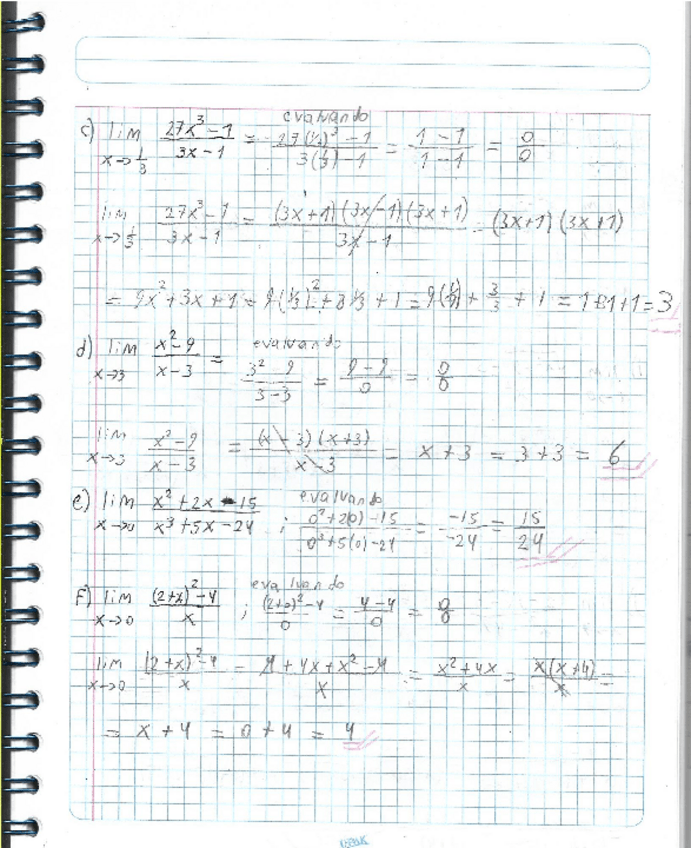 evaluando
c) lim x→1/3 (27x³-1)/(3x-1) = (27(1/3)³-1)/(3(1/3)-1) = (1-1)/(1-1) = 0/0
lim x→1/3 (27x³-1)/(3x-1) = ((3x+1)(3x-1)(3x+1))/(3x-1) = (3x+1)(3x+1)
= 9x²+3x+1 = 9(1/3)²+3 1/3+1 = 9(1/9)+3/3+1 = 1+1+1 = 3
d) lim x→3 (x²-9)/(x-3) = evaluando (3²-9)/(3-3) = (9-9)/0 = 0/0
lim x→3 (x²-9)/(x-3) = ((x-3)(x+3))/(x-3) = x+3 = 3+3 = 6
e) lim x→0 (x²+2x-15)/(x³+5x-24) ; evaluando (0²+2(0)-15)/(0³+5(0)-24) = -15/-24 = 15/24
f) lim x→0 ((2+x)²-4)/x ; evaluando ((2+0)²-4)/0 = (4-4)/0 = 0/0
lim x→0 ((2+x)²-4)/x = (4+4x+x²-4)/x = (x²+4x)/x = (x(x+4))/x =
= x+4 = 0+4 = 4